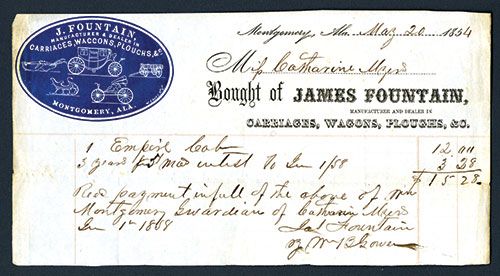 J. FOUNTAIN,
MANUFACTURER & DEALER IN
CARRIAGES, WAGGONS, PLOUGHS, &C.
MONTGOMERY, ALA.
Montgomery, Ala. May 20 1854
Miss Catharine Myers
Bought of JAMES FOUNTAIN,
MANUFACTURER AND DEALER IN
CARRIAGES, WAGONS, PLOUGHS, &C.
1 Empire Cab 12,00
3 years & 7 Mos interest to Jan 1/58 3 28
$ 15 28
Recd payment in full of the above of Wm
Montgomery Guardian of Catharine Myers
Jan 1st 1858
Jas Fountain
By Wm B Gowen